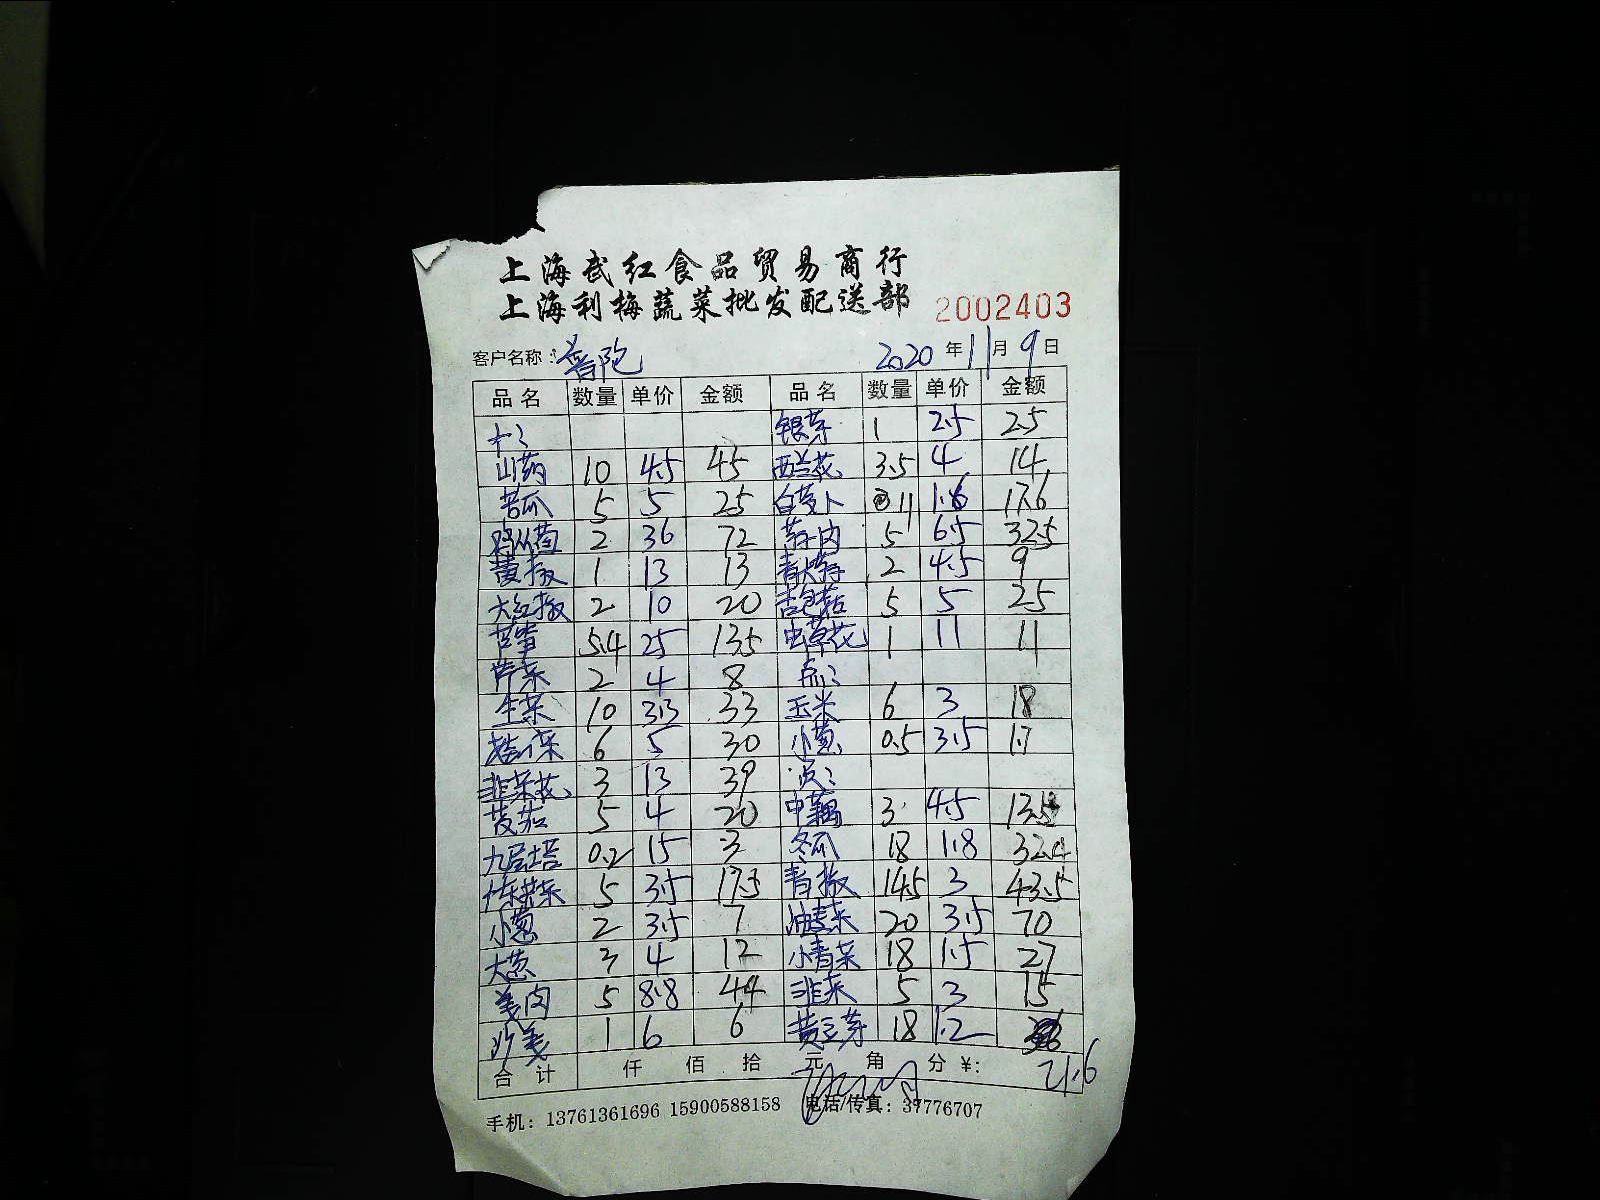 上海武红食品贸易商行
上海利梅蔬菜批发配送部 2002403
客户名称：普陀 2020年11月9日
品名 数量 单价 金额 品名 数量 单价 金额
银芽 1 2.5 2.5
山药 10 4.5 45 西兰花 3.5 4 14
苦瓜 5 5 25 白萝卜 11 1.6 17.6
鸡从菌 2 36 72 肉 5 6.5 32.5
黄椒 1 13 13 2 4.5 9
大红椒 2 10 20 5 5 25
5.4 25 135 虫草花 1 11 11
芹菜 2 4 8
生菜 10 3.3 33 玉米 6 3 18
6 5 30 小葱 0.5 3.5 1.7
韭菜花 3 13 39
5 4 20 中藕 3 4.5 13.5
九层塔 0.2 15 3 冬瓜 18 1.8 32.4
5 3.5 17.5 青椒 14.5 3 43.5
小葱 2 3.5 7 油麦菜 20 3.5 70
大葱 3 4 12 小青菜 18 1.5 27
姜肉 5 8.8 44 韭菜 5 3 15
沙姜 1 6 6 黄豆芽 18 1.2
合计 仟 佰 拾 元 角 分 ¥: 21.6
手机：13761361696 15900588158 电话/传真：37776707